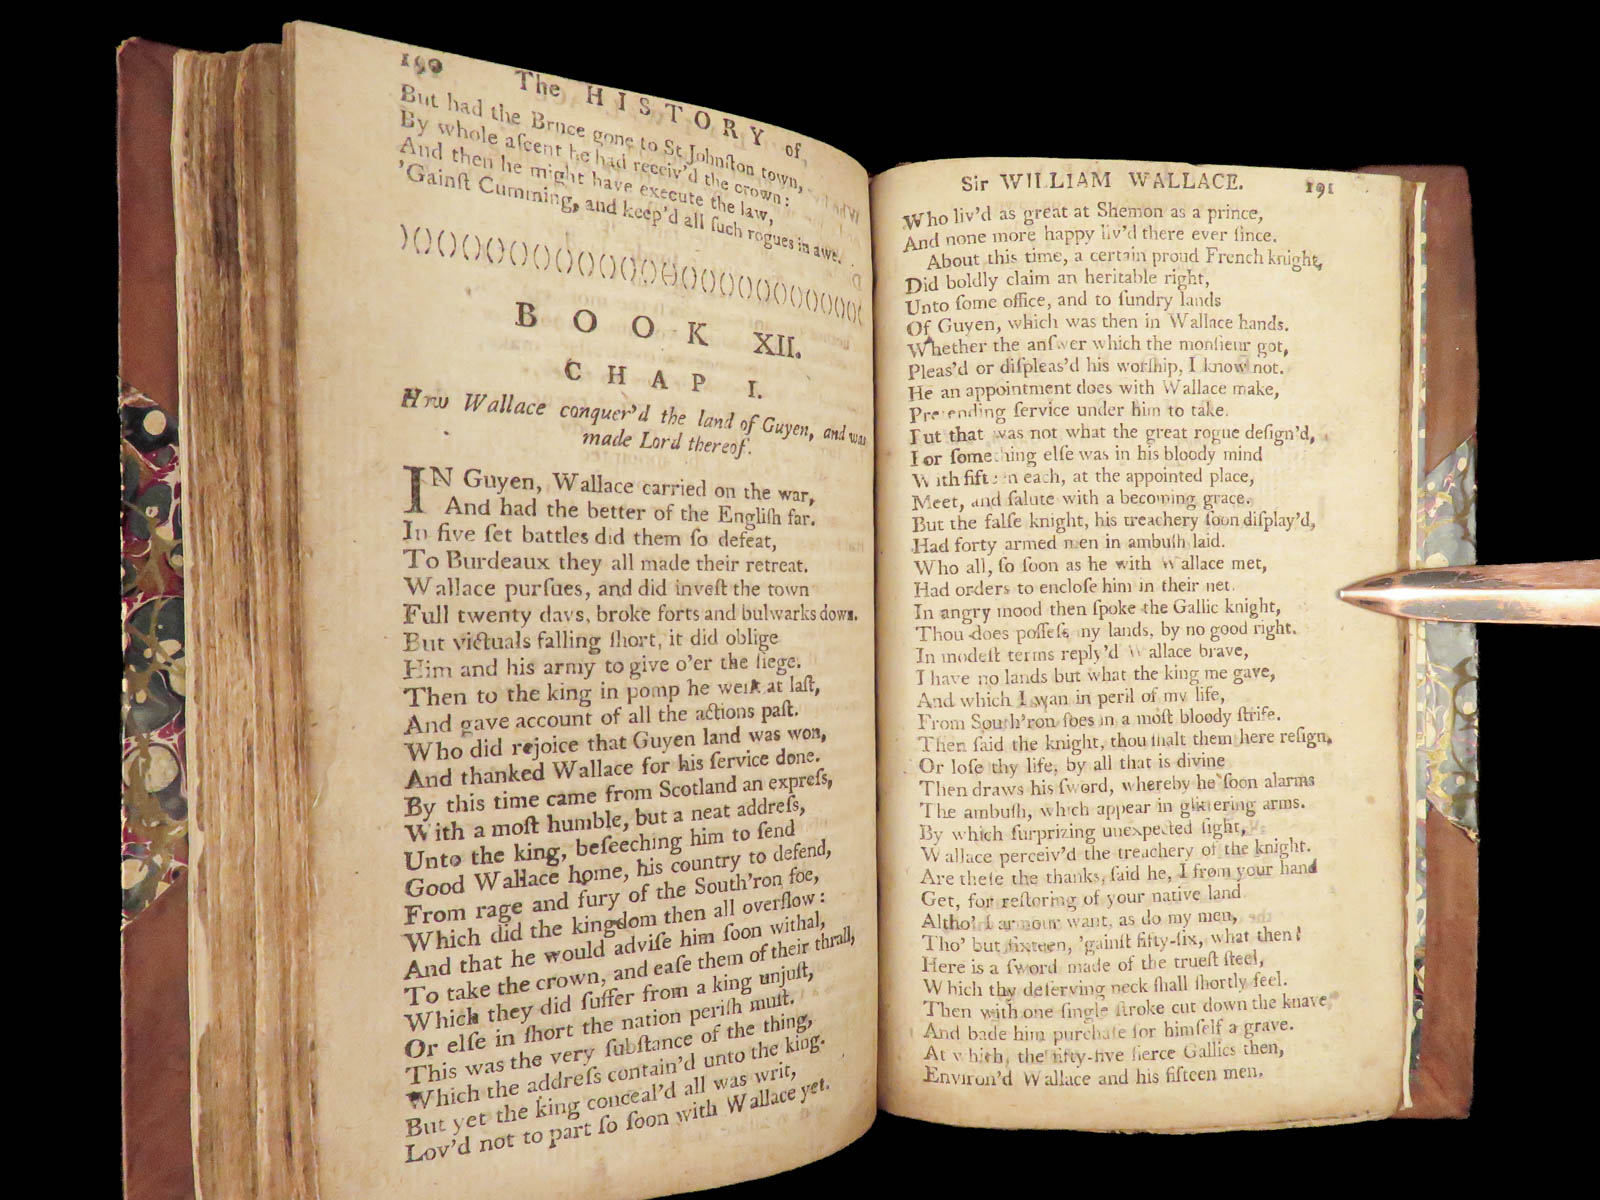 190
The HISTORY of
But had the Bruce gone to St Johnſton town,
By whole aſcent he had receiv'd the crown:
And then he might have execute the law,
'Gainſt Cumming, and keep'd all ſuch rogues in awe.
BOOK XII.
CHAP I.
How Wallace conquer'd the land of Guyen, and was
made Lord thereof.
IN Guyen, Wallace carried on the war,
And had the better of the Engliſh far.
In five ſet battles did them ſo defeat,
To Burdeaux they all made their retreat.
Wallace purſues, and did inveſt the town
Full twenty days, broke forts and bulwarks down.
But victuals falling ſhort, it did oblige
Him and his army to give o'er the ſiege.
Then to the king in pomp he went at laſt,
And gave account of all the actions paſt.
Who did rejoice that Guyen land was won,
And thanked Wallace for his ſervice done.
By this time came from Scotland an expreſs,
With a moſt humble, but a neat addreſs,
Unto the king, beſeeching him to ſend
Good Wallace home, his country to defend,
From rage and fury of the South'ron foe,
Which did the kingdom then all overflow:
And that he would adviſe him ſoon withal,
To take the crown, and eaſe them of their thrall,
Which they did ſuffer from a king unjuſt,
Or elſe in ſhort the nation periſh muſt.
This was the very ſubſtance of the thing,
Which the addreſs contain'd unto the king.
But yet the king conceal'd all was writ,
Lov'd not to part ſo ſoon with Wallace yet.
Sir WILLIAM WALLACE. 191
Who liv'd as great at Shemon as a prince,
And none more happy liv'd there ever ſince.
About this time, a certain proud French knight,
Did boldly claim an heritable right,
Unto ſome office, and to ſundry lands
Of Guyen, which was then in Wallace hands.
Whether the anſwer which the monſieur got,
Pleas'd or diſpleas'd his worſhip, I know not.
He an appointment does with Wallace make,
Pretending ſervice under him to take.
But that was not what the great rogue deſign'd,
For ſomething elſe was in his bloody mind
With fifteen each, at the appointed place,
Meet, and ſalute with a becoming grace.
But the falſe knight, his treachery ſoon diſplay'd,
Had forty armed men in ambuſh laid.
Who all, ſo ſoon as he with Wallace met,
Had orders to encloſe him in their net.
In angry mood then ſpoke the Gallic knight,
Thou does poſſeſs my lands, by no good right.
In modeſt terms reply'd Wallace brave,
I have no lands but what the king me gave,
And which I wan in peril of my life,
From South'ron foes in a moſt bloody ſtrife.
Then ſaid the knight, thou ſhalt them here reſign,
Or loſe thy life, by all that is divine
Then draws his ſword, whereby he ſoon alarms
The ambuſh, which appear in glittering arms.
By which ſurprizing unexpected ſight,
Wallace perceiv'd the treachery of the knight.
Are theſe the thanks, ſaid he, I from your hand
Get, for reſtoring of your native land
Altho' I armour want, as do my men,
Tho' but ſixteen, 'gainſt fifty-ſix, what then!
Here is a ſword made of the trueſt ſteel,
Which thy deſerving neck ſhall ſhortly feel.
Then with one ſingle ſtroke cut down the knave,
And bade him purchaſe for himſelf a grave.
At which, the fifty-five fierce Gallics then,
Environ'd Wallace and his fifteen men.